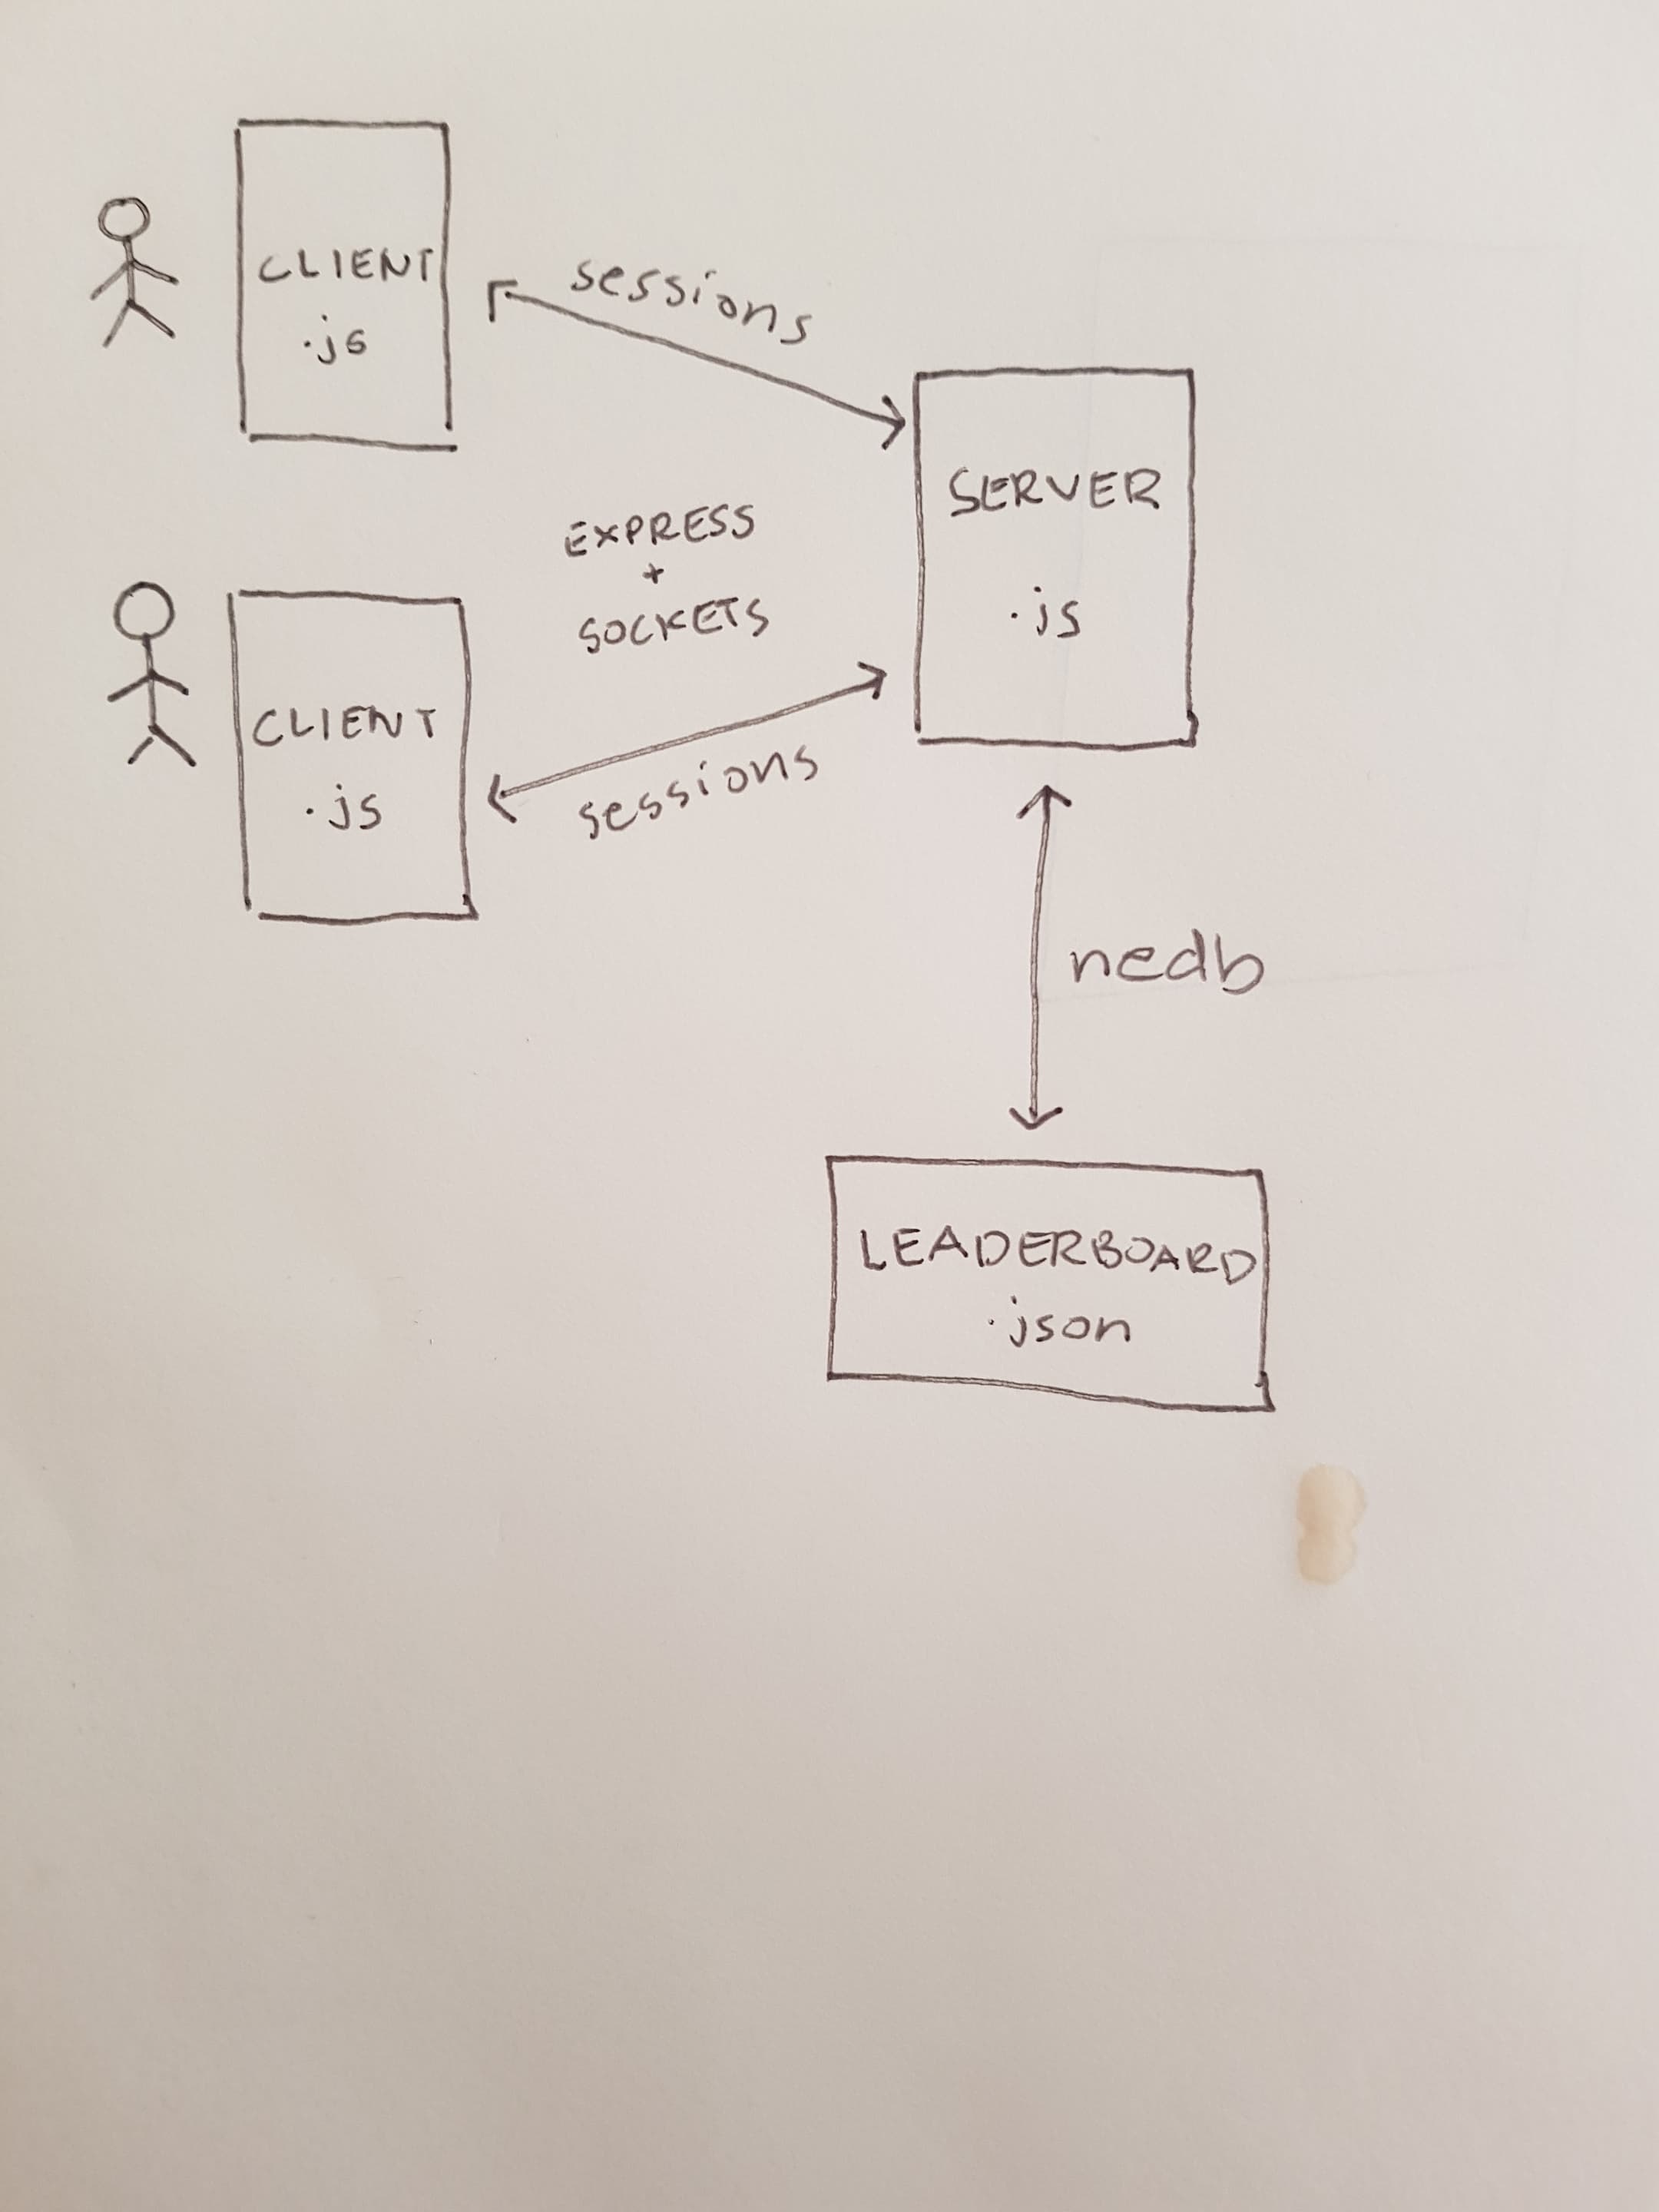 CLIENT
.js
sessions
SERVER
.js
EXPRESS
+
SOCKETS
CLIENT
.js
sessions
nedb
LEADERBOARD
.json